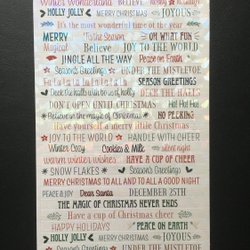 Winter Wonderland BELIEVE Merry Holidays
HOLLY JOLLY MERRY CHRISTMAS JOYOUS
It's the most wonderful time of the year
MERRY Tis the Season OH WHAT FUN
Magical Believe JOY TO THE WORLD
JINGLE ALL THE WAY Peace on Earth
Season's Greetings UNDER THE MISTLETOE
Fa la la la la la la Season's Greetings
Deck the halls with boughs of holly DECK THE HALLS
DON'T OPEN UNTIL CHRISTMAS Ho! Ho! Ho!
Believe in the magic of Christmas NO PEEKING
Have yourself a merry little Christmas
JOY TO THE WORLD HANDLE WITH CHEER
Winter Cozy Cookies & Milk silent night
warm winter wishes HAVE A CUP OF CHEER
SNOW FLAKES Season's Greetings
MERRY CHRISTMAS TO ALL AND TO ALL A GOOD NIGHT
PEACE & JOY Dear Santa DECEMBER 25TH
THE MAGIC OF CHRISTMAS NEVER ENDS
Have a cup of Christmas cheer
HAPPY HOLIDAYS PEACE ON EARTH
HOLLY JOLLY MERRY CHRISTMAS JOYOUS
Season's Greetings UNDER THE MISTLETOE